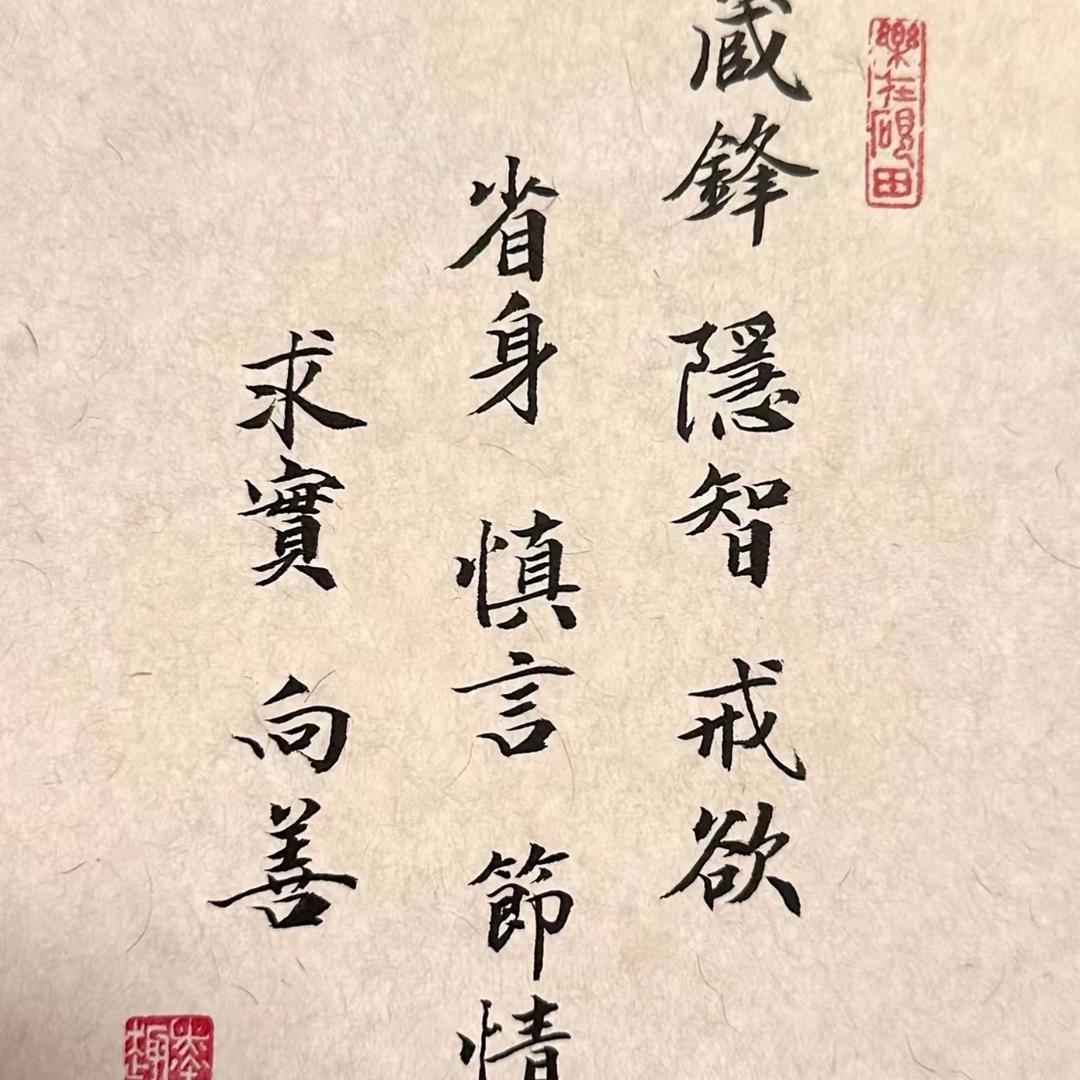 藏鋒 隱智 戒欲
省身 慎言 節情
求實 向善
樂在硯田